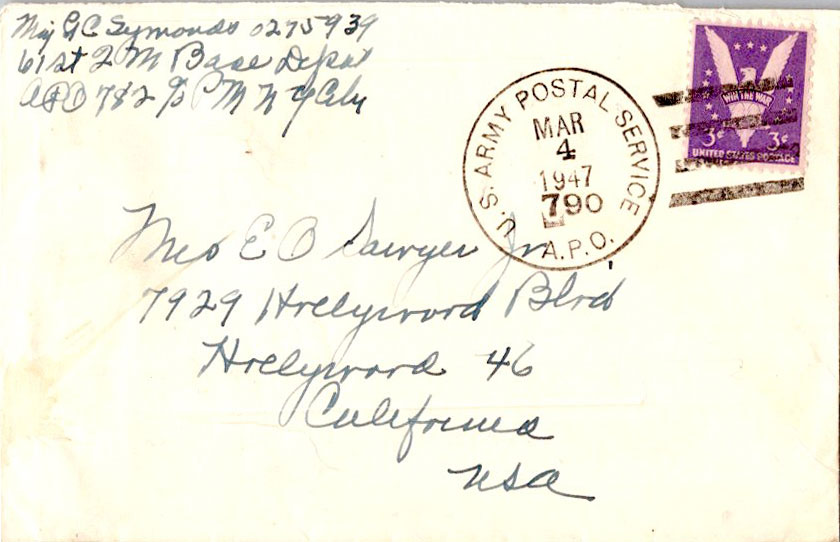 Maj G C Symonds 0275939
61st Q M Base Depot
APO 782 % P M N Y City
U.S. ARMY POSTAL SERVICE
MAR
4
1947
790
A.P.O.
WIN THE WAR
3¢ 3¢
UNITED STATES POSTAGE
Mrs E O Sawyer Jr,
7929 Hollywood Blvd
Hollywood 46
California
USA